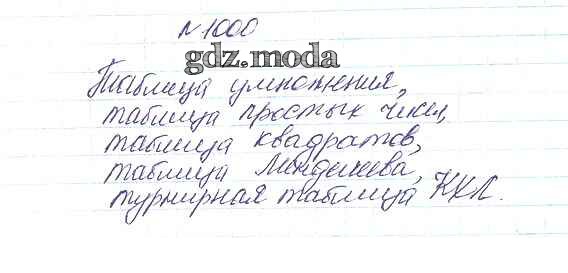 № 1000
gdz.moda
Таблица умножения,
таблица простых чисел,
таблица квадратов,
таблица Менделеева,
турнирная таблица КХЛ.